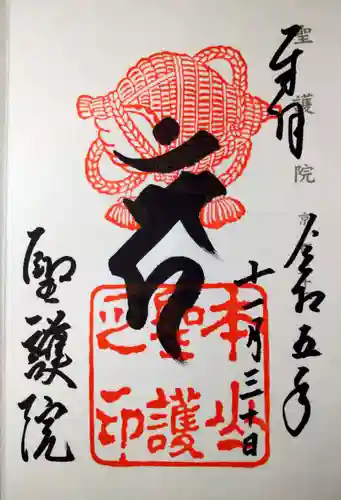 奉拝
聖護院 京
令和五年
十一月三十日
聖護院
本山
聖護
院印